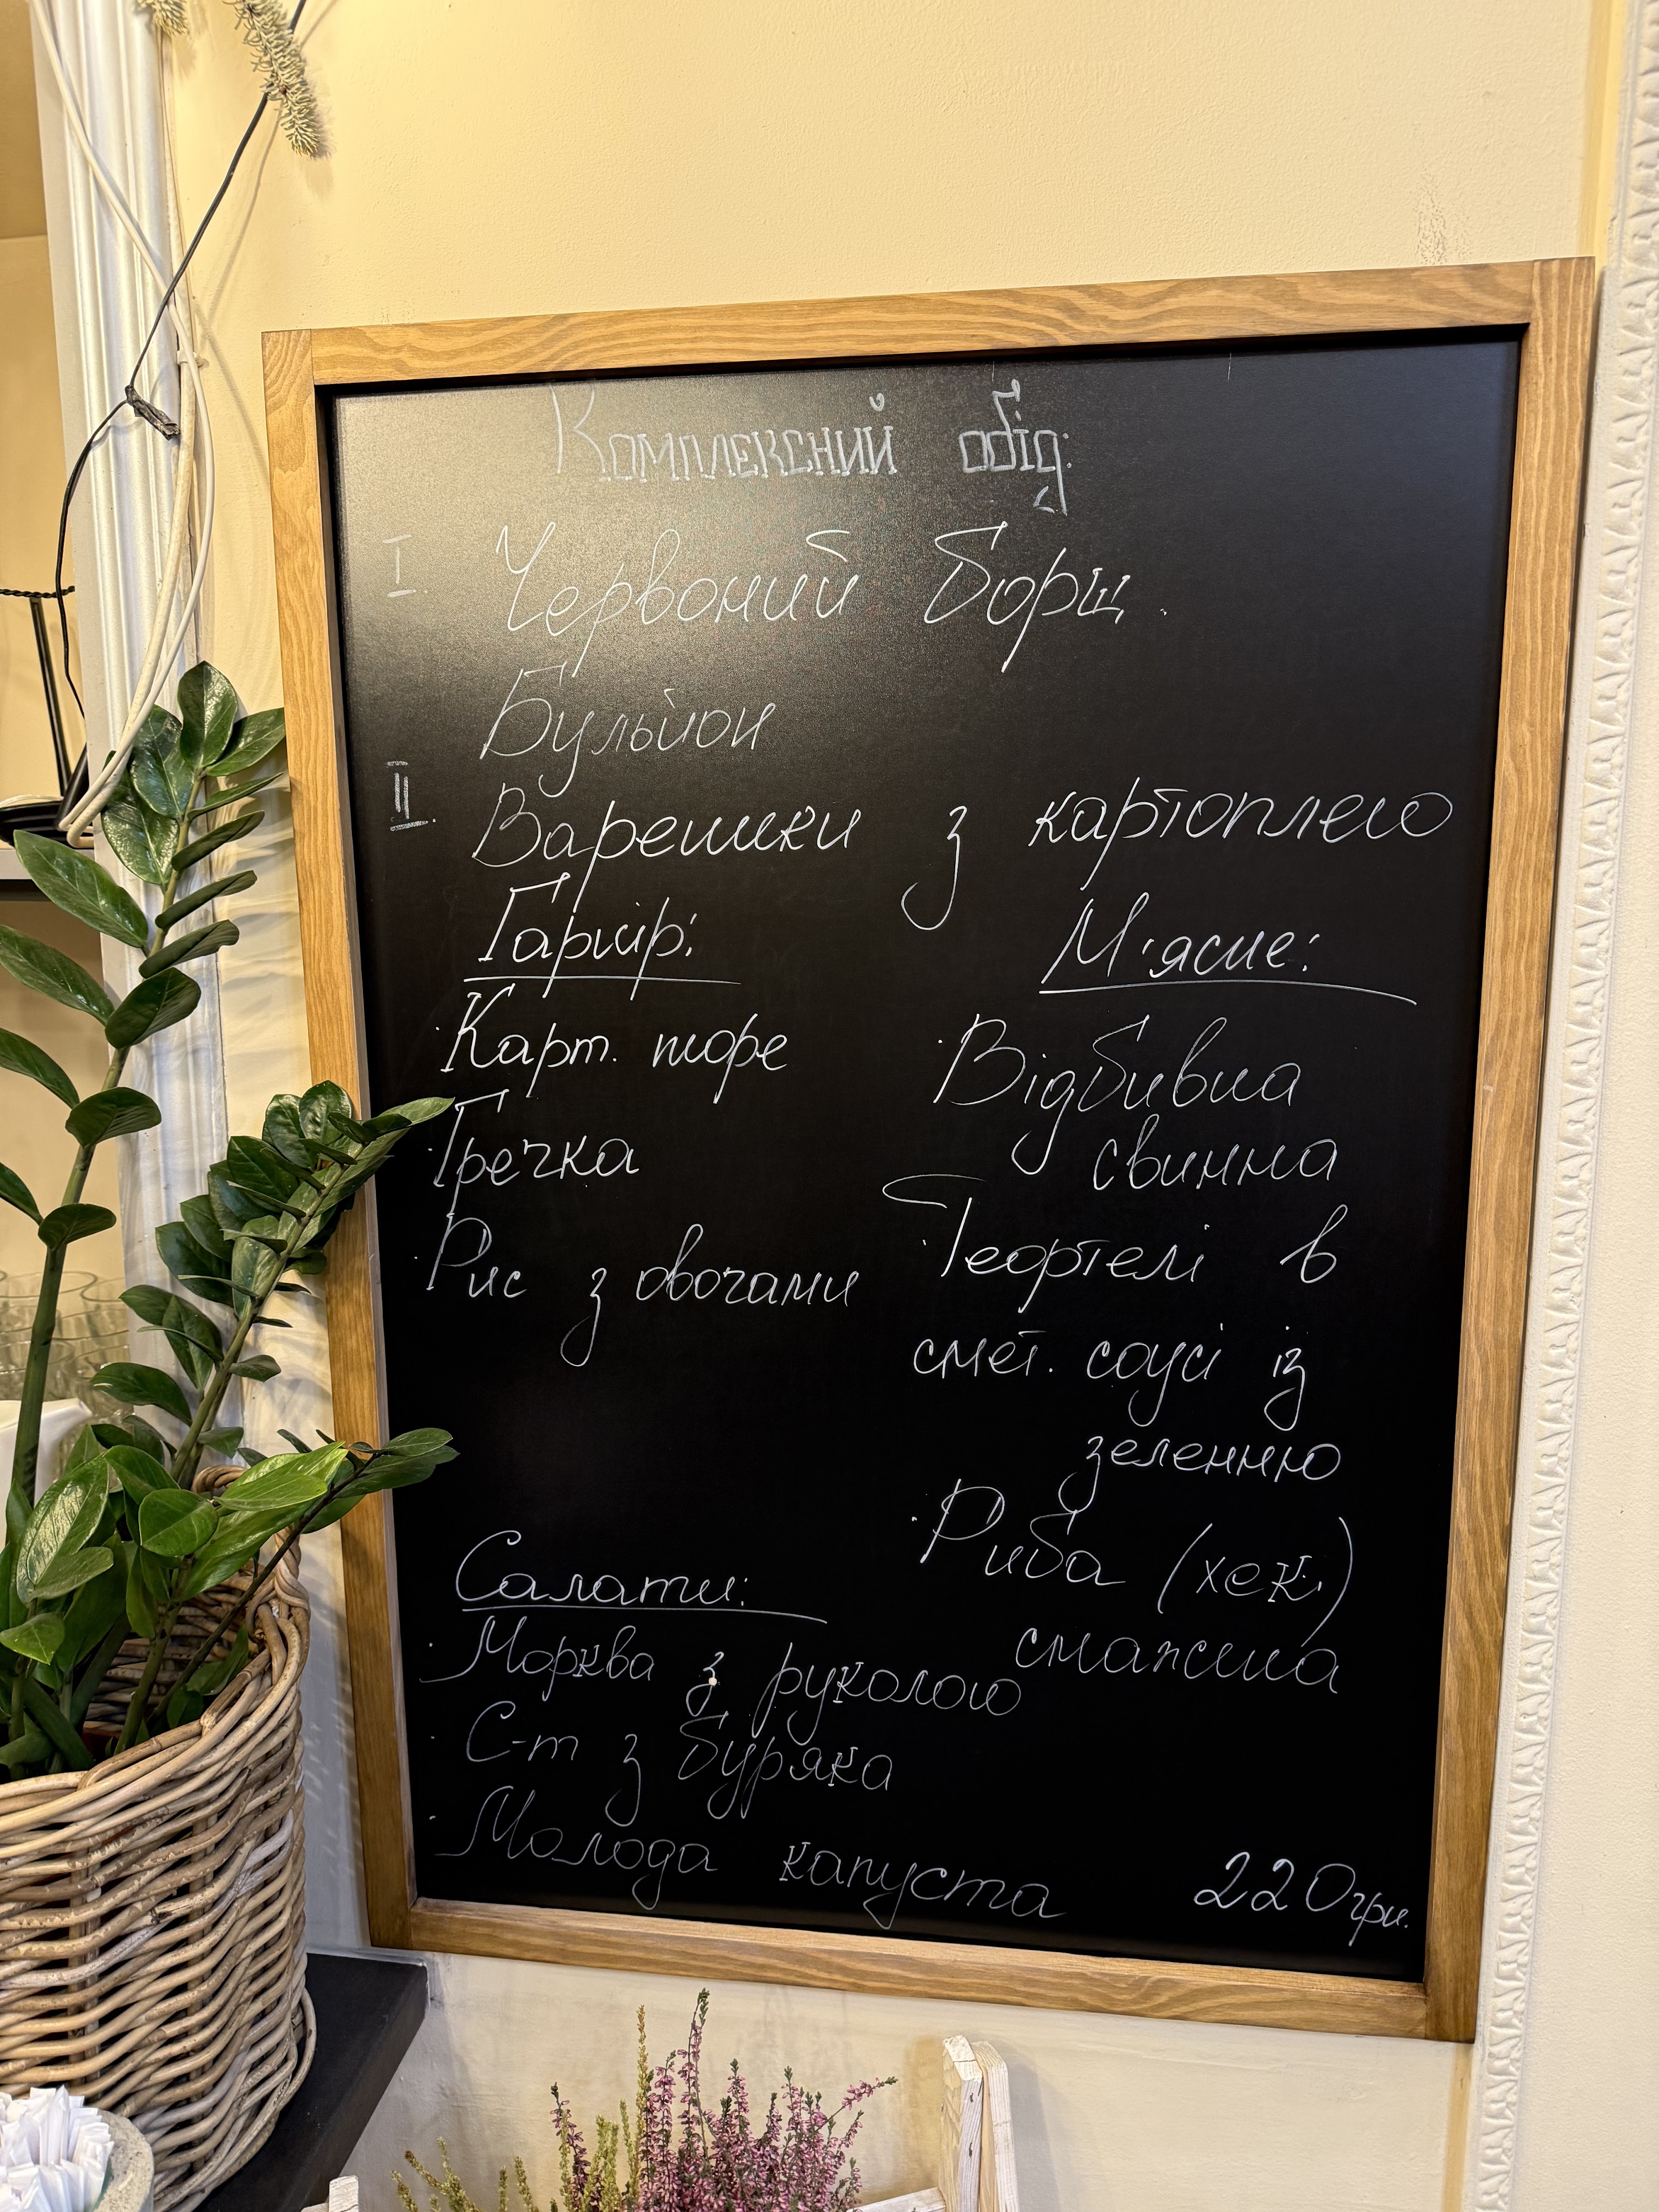 Комплексний обід:
I. Червоний борщ.
Бульйон
II. Вареники з картоплею
Гарнір:
· Карт. пюре
· Гречка
· Рис з овочами
М'ясне:
· Відбивна
свинна
· Тефтелі в
смет. соусі із
зеленню
· Риба (хек)
смажена
Салати:
· Морква з руколою
· С-т з буряка
· Молода капуста
220грн.